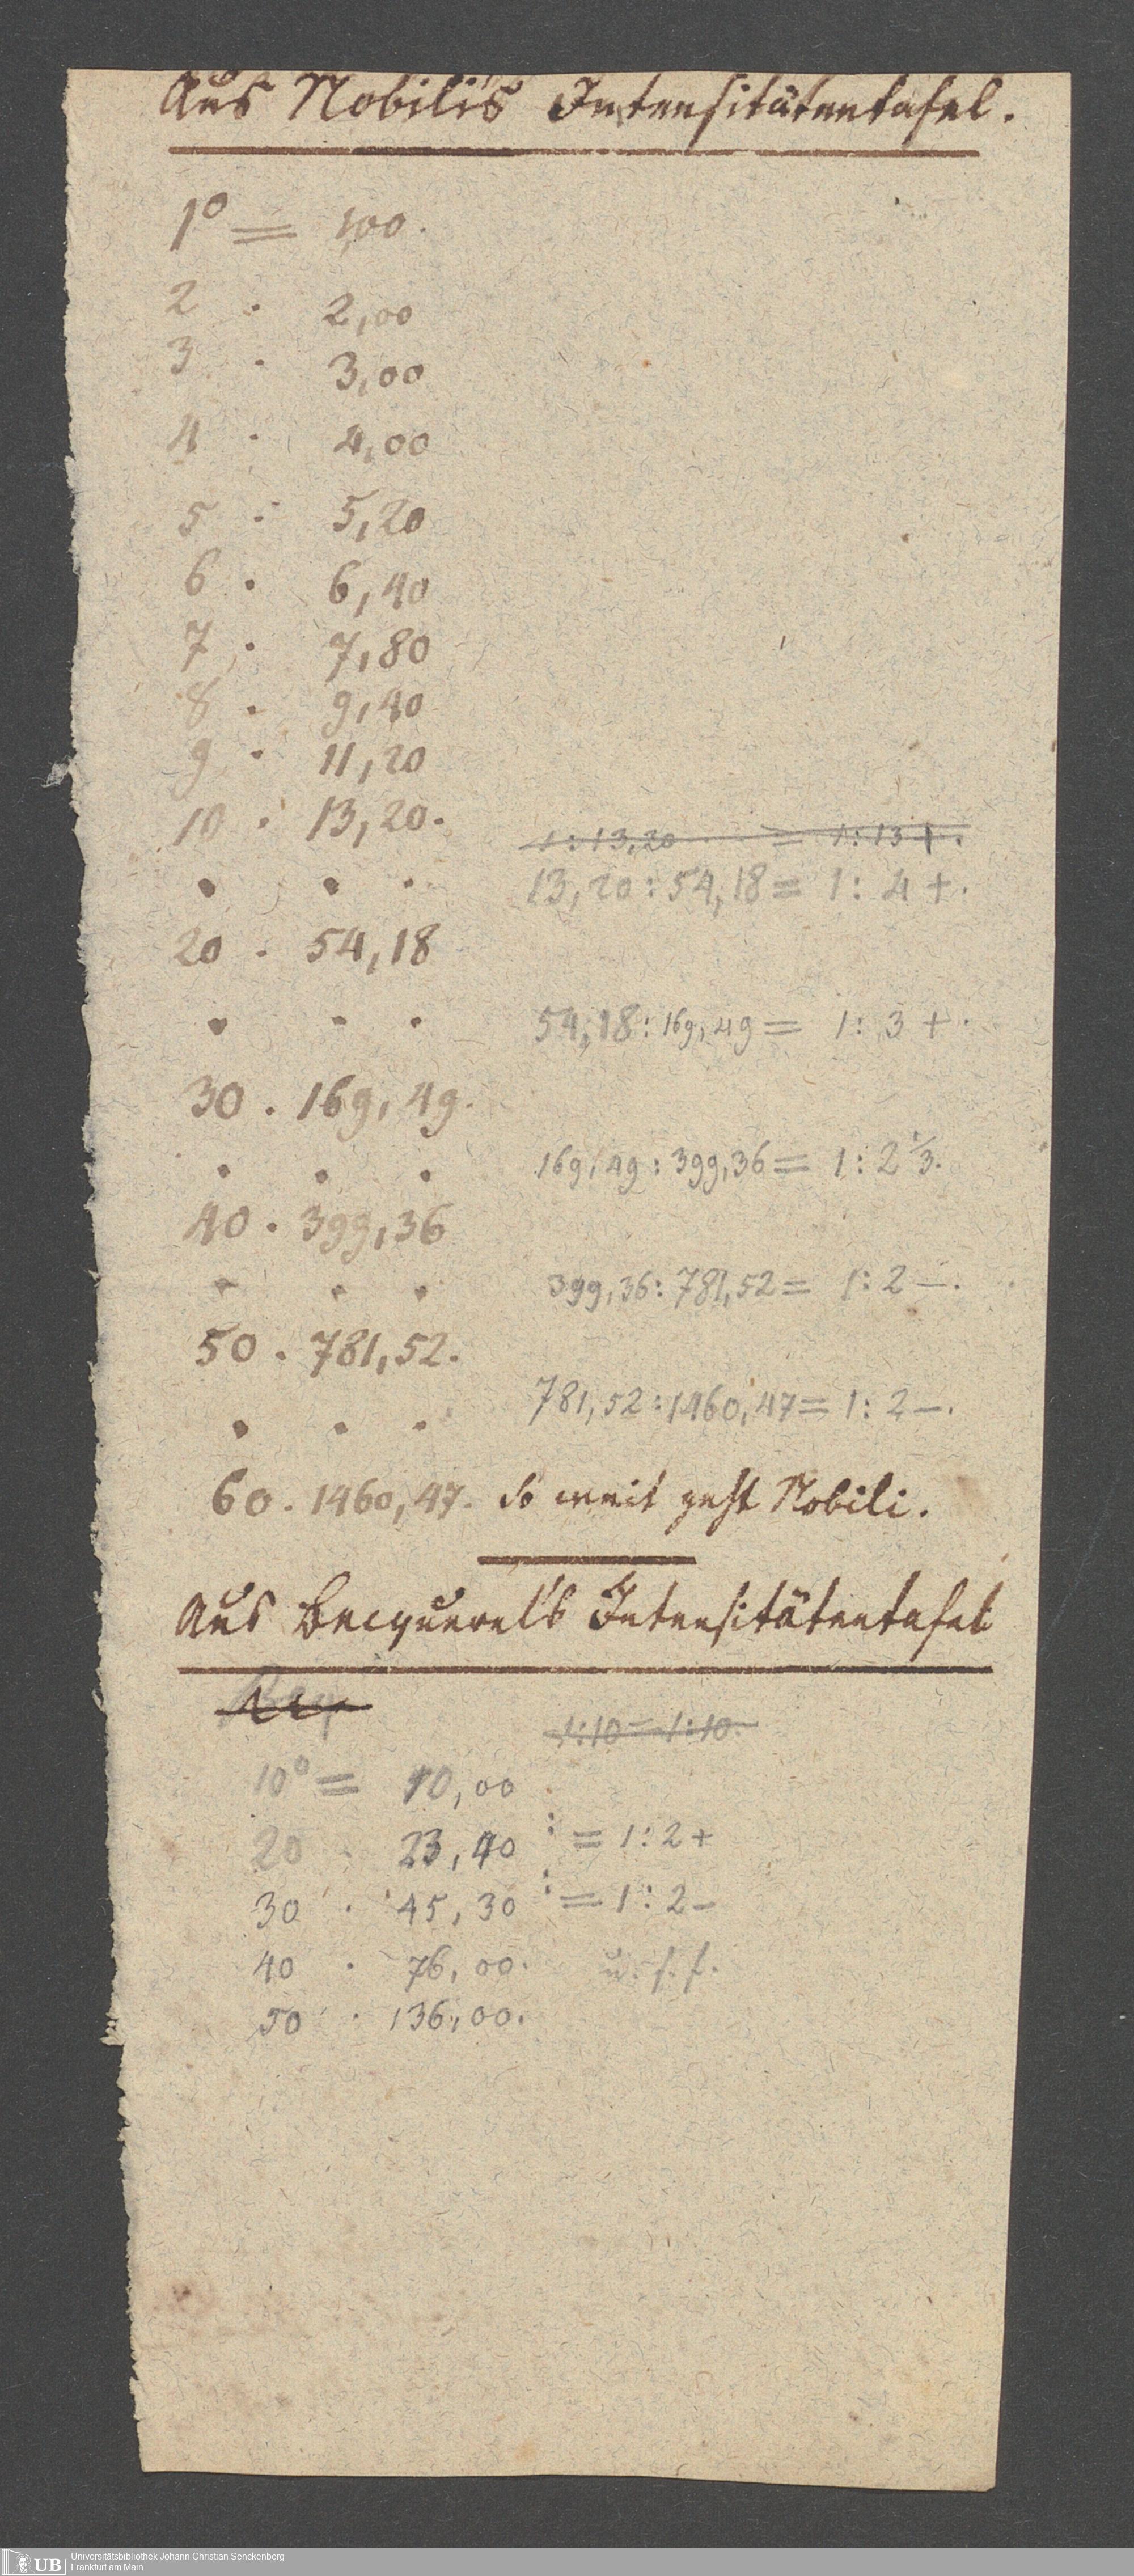 Aus Nobili's Intensitätentafel.
1° = 100.
2 · 2,00
3 · 3,00
4 · 4,00
5 · 5,20
6 · 6,40
7 · 7,80
8 · 9,40
9 · 11,20
10 · 13,20.
1:13,20 = 1:13+.
· · · 13,20:54,18 = 1: 4+.
20 · 54,18
· · · 54,18:169,49 = 1: 3+.
30 . 169,49.
· · · 169,49:399,36 = 1:2 1/3.
40 . 399,36
· · · 399,36:781,52 = 1:2 -.
50 . 781,52.
· · · 781,52:1460,47 = 1:2 -.
60 . 1460,47. So weit geht Nobili.
Aus Becquerel's Intensitätentafel
1:10 = 1:10.
10° = 10,00
20 · 23,40 : = 1:2+
30 · 45,30 : = 1:2-
40 · 76,00. u. s. f.
50 · 136,00.
UB Universitätsbibliothek Johann Christian Senckenberg
Frankfurt am Main